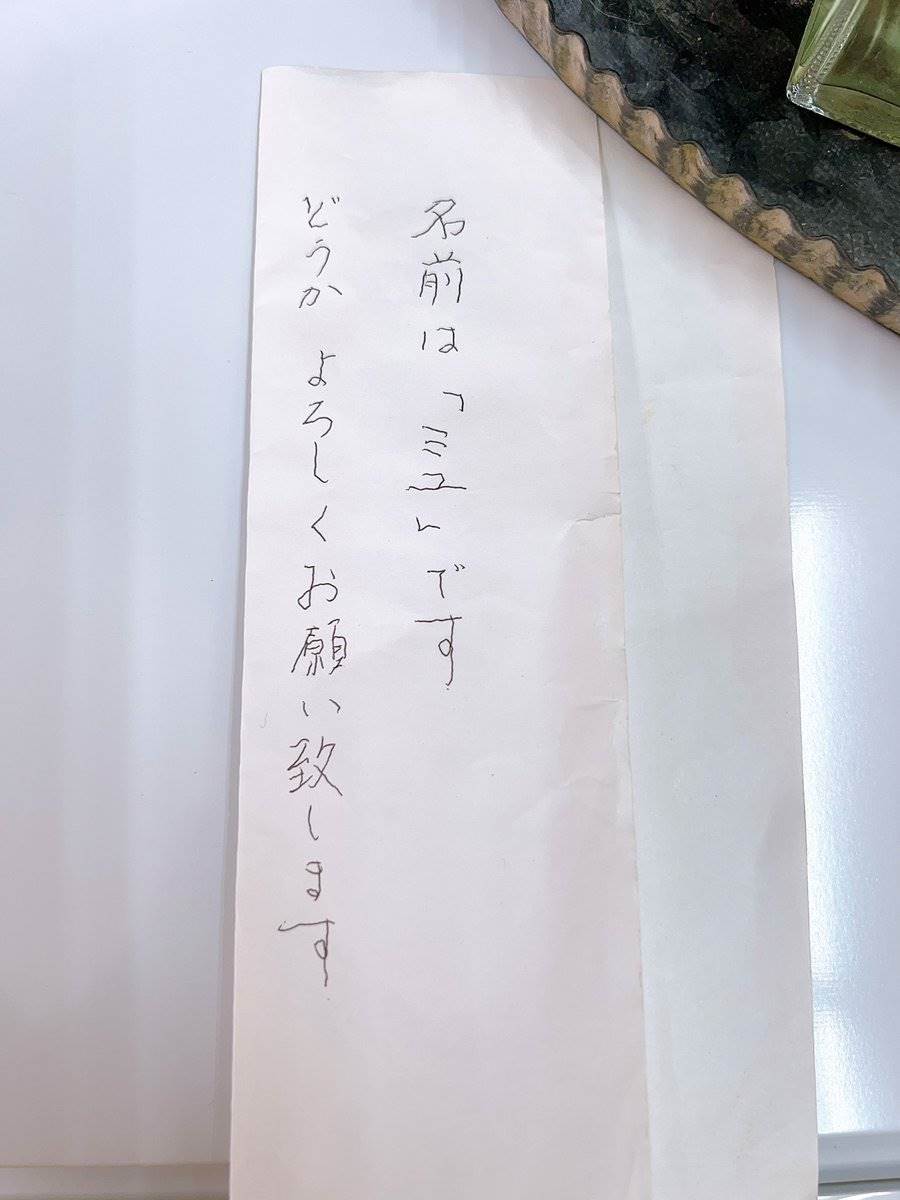 名前は「ミユ」です
どうか よろしくお願い致します